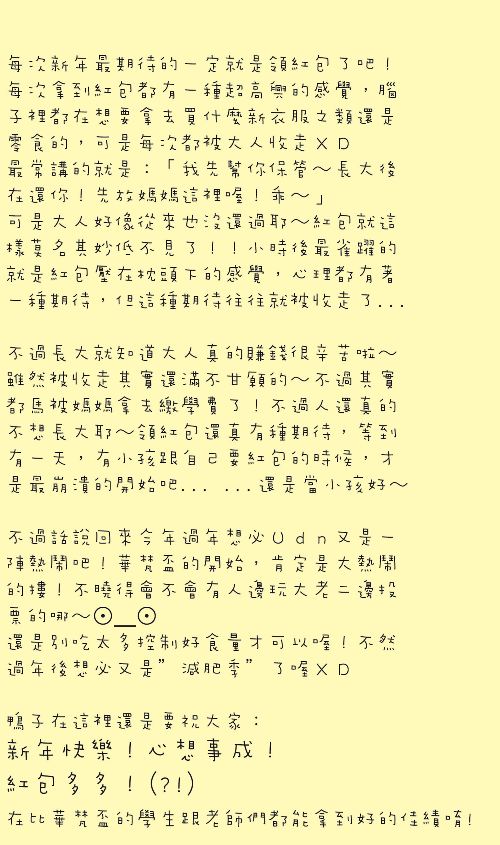 每次新年最期待的一定就是領紅包了吧！
每次拿到紅包都有一種超高興的感覺，腦
子裡都在想要拿去買什麼新衣服之類還是
零食的，可是每次都被大人收走ＸＤ
最常講的就是：「我先幫你保管～長大後
在還你！先放媽媽這裡喔！乖～」
可是大人好像從來也沒還過耶～紅包就這
樣莫名其妙低不見了！！小時後最雀躍的
就是紅包壓在枕頭下的感覺，心理都有著
一種期待，但這種期待往往就被收走了...

不過長大就知道大人真的賺錢很辛苦啦～
雖然被收走其實還滿不甘願的～不過其實
都馬被媽媽拿去繳學費了！不過人還真的
不想長大耶～領紅包還真有種期待，等到
有一天，有小孩跟自己要紅包的時候，才
是最崩潰的開始吧... ...還是當小孩好～

不過話說回來今年過年想必Ｕｄｎ又是一
陣熱鬧吧！華梵盃的開始，肯定是大熱鬧
的摟！不曉得會不會有人邊玩大老二邊投
票的哪～⊙__⊙
還是別吃太多控制好食量才可以喔！不然
過年後想必又是”減肥季”了喔ＸＤ

鴨子在這裡還是要祝大家：
新年快樂！心想事成！
紅包多多！(?!)
在比華梵盃的學生跟老師們都能拿到好的佳績唷!